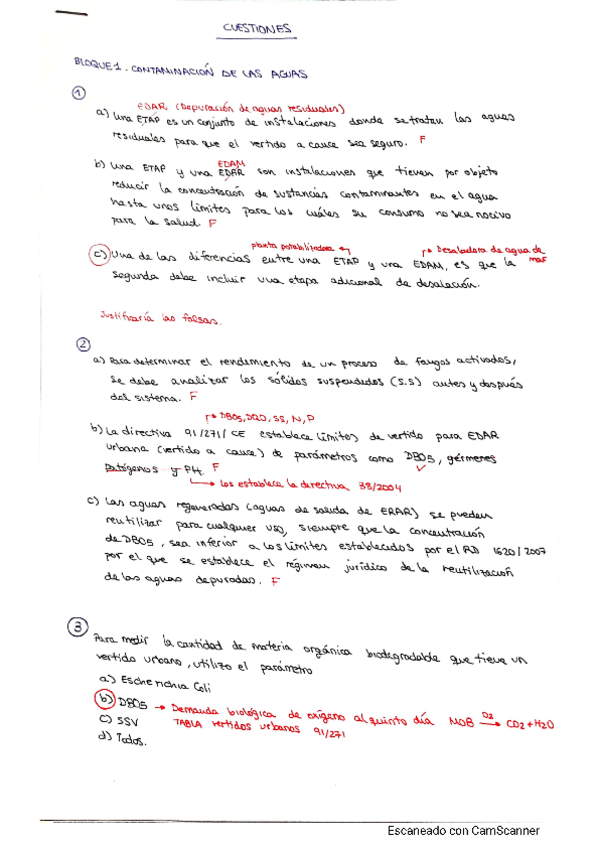 CUESTIONES
BLOQUE 1. CONTAMINACIÓN DE LAS AGUAS
①
EDAR (Depuración de aguas residuales)
a) Una ETAP es un conjunto de instalaciones donde se tratan las aguas
residuales para que el vertido a cauce sea seguro. F
EDAM
b) Una ETAP y una EDAR son instalaciones que tienen por objeto
reducir la concentración de sustancias contaminantes en el agua
hasta unos límites para los cuáles su consumo no sea nocivo
para la salud F
planta potabilizadora
Desaladora de agua de mar
c) Una de las diferencias entre una ETAP y una EDAM, es que la
segunda debe incluir una etapa adicional de desalación.
Justificaría las falsas.
②
a) Para determinar el rendimiento de un proceso de fangos activados,
se debe analizar los sólidos suspendidos (S.S) antes y después
del sistema. F
→ DBO5, DQO, SS, N, P
b) La directiva 91/271/CE establece límites de vertido para EDAR
urbana (vertido a cauce) de parámetros como DBO5, gérmenes
patógenos y PH. F
→ los establece la directiva 38/2004
c) Las aguas regeneradas (aguas de salida de ERAR) se pueden
reutilizar para cualquier uso, siempre que la concentración
de DBO5, sea inferior a los límites establecidos por el RD 1620/2007
por el que se establece el régimen jurídico de la reutilización
de las aguas depuradas. F
③
Para medir la cantidad de materia orgánica biodegradable que tiene un
vertido urbano, utilizo el parámetro
a) Escherichia Coli
b) DBO5 → Demanda biológica de oxígeno al quinto día MOB O2→ CO2 + H2O
c) SSV TABLA vertidos urbanos 91/271
d) Todos.
Escaneado con CamScanner